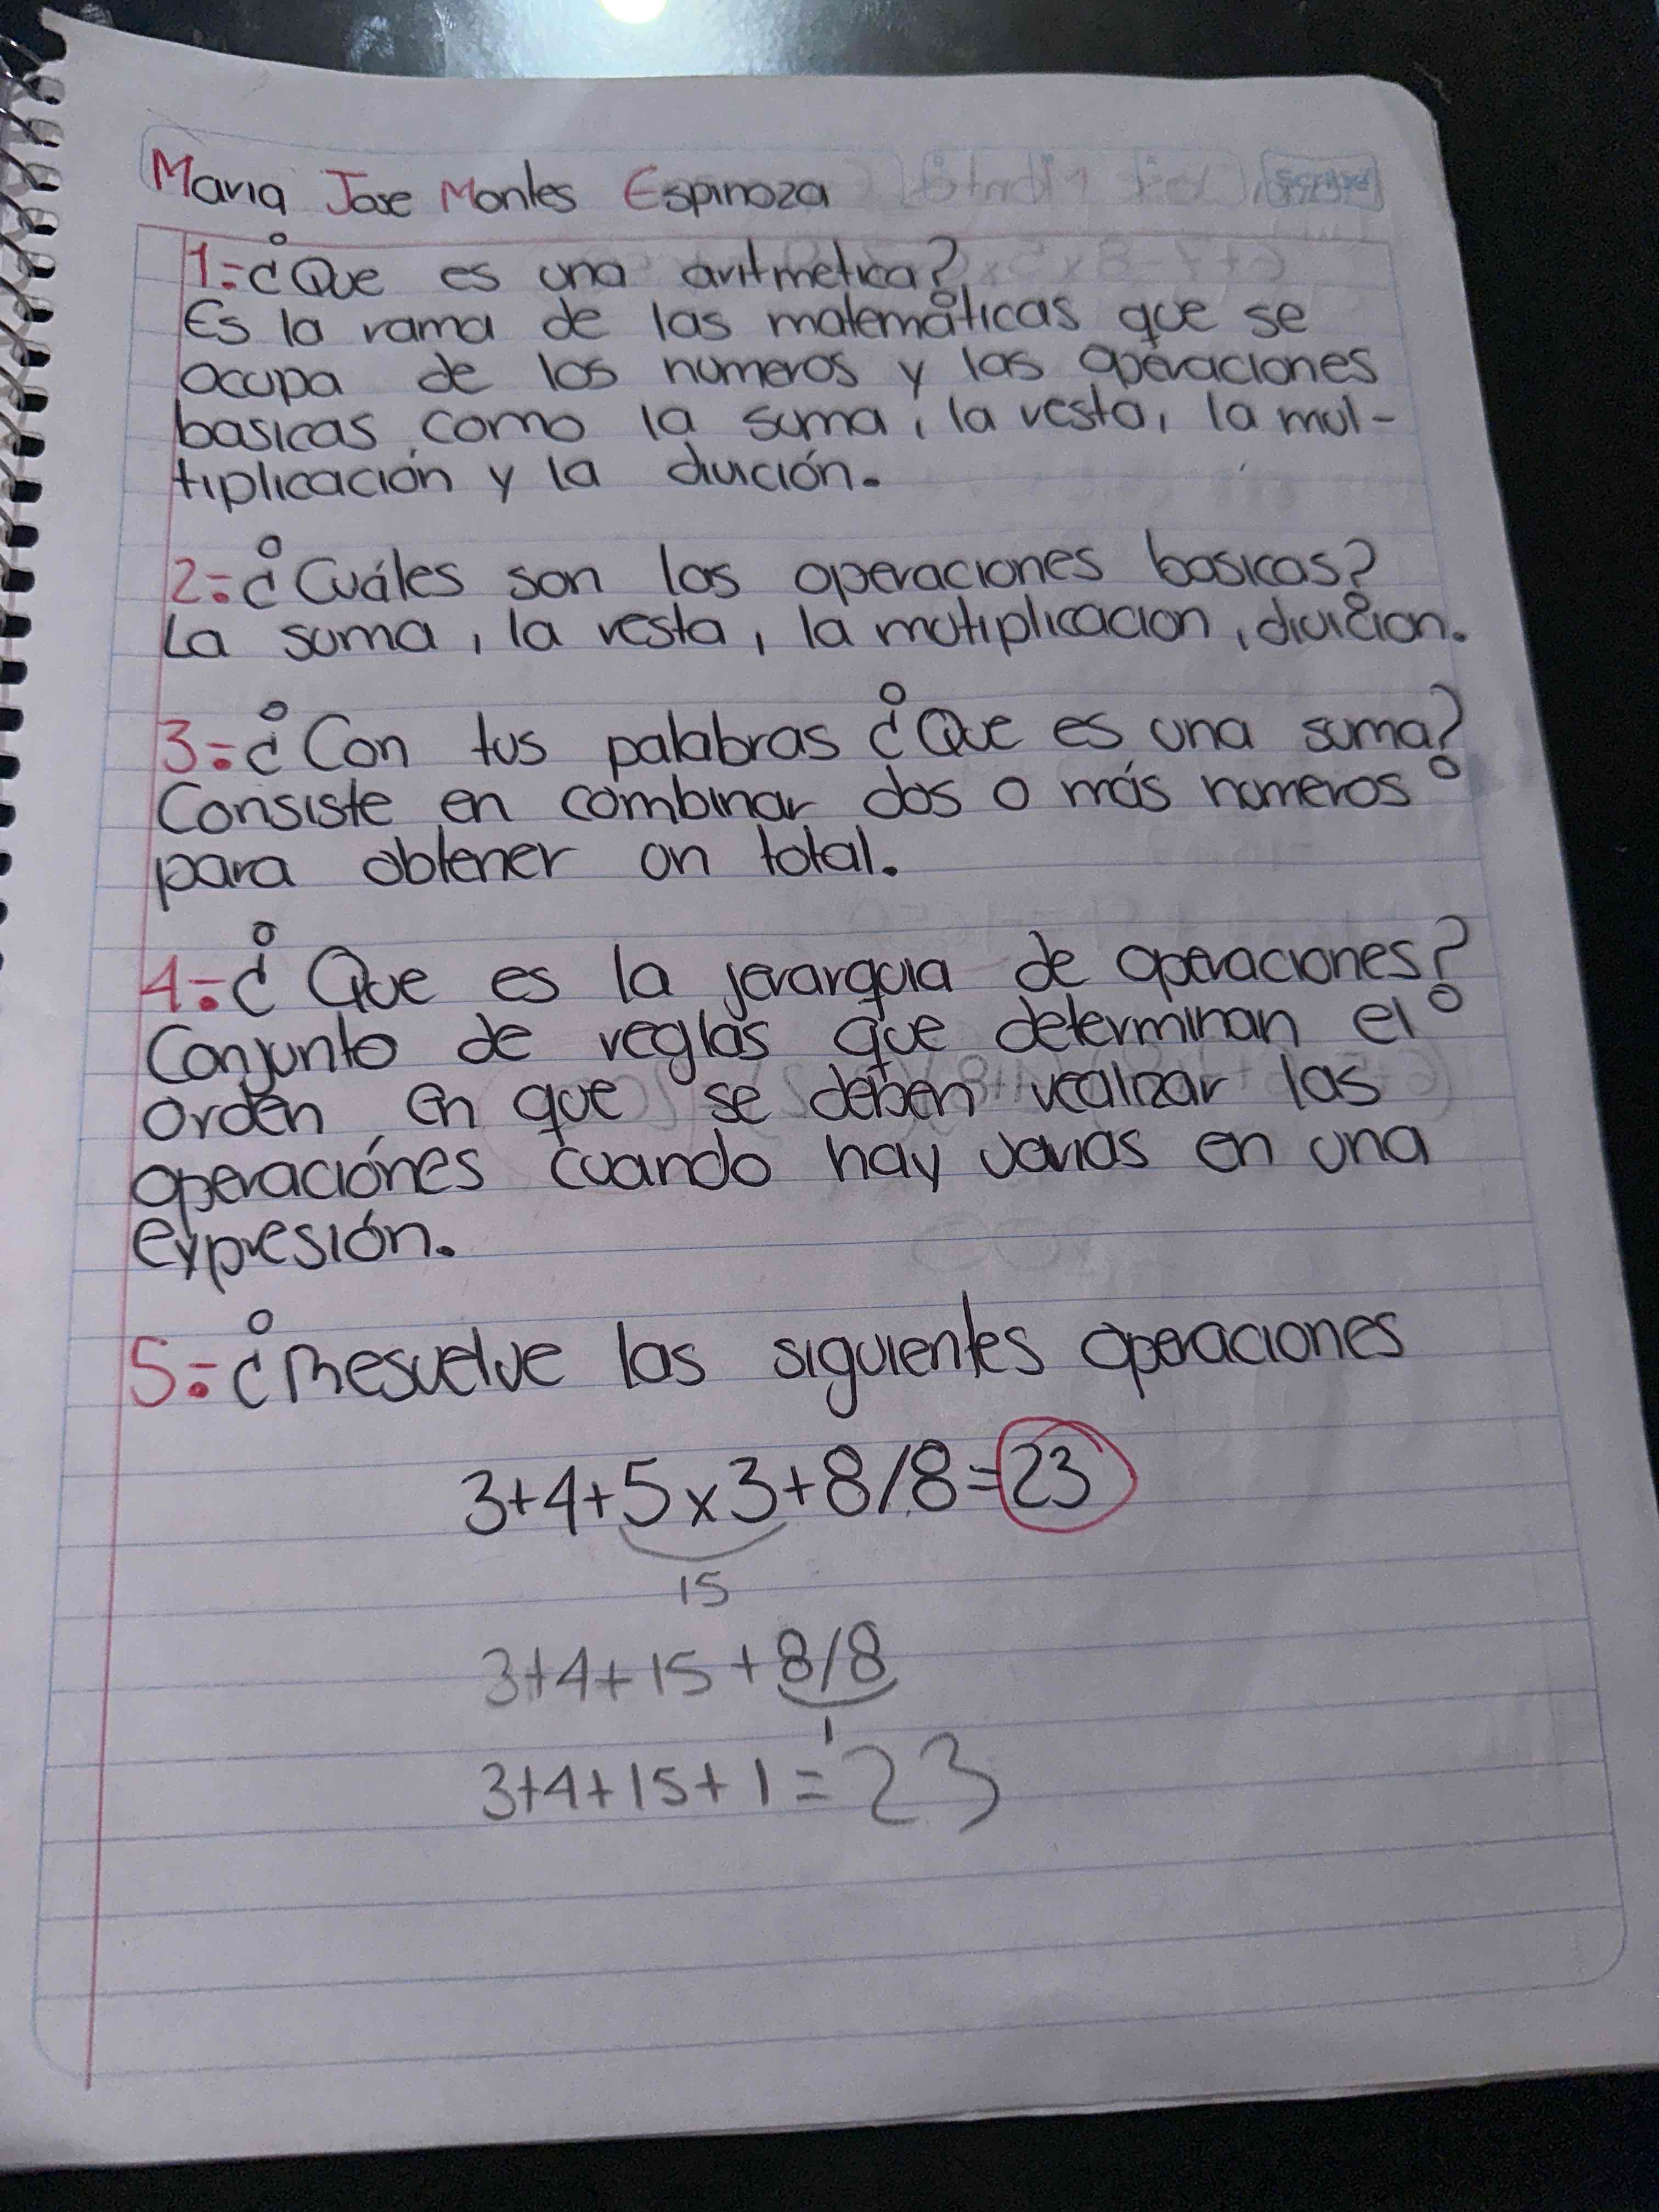 Maria Jose Montes Espinoza
1=¿Que es una aritmetica?
Es la rama de las matemáticas que se
ocupa de los numeros y las operaciones
basicas como la suma, la resta, la mul-
tiplicación y la divición.
2=¿Cuáles son las operaciones basicas?
La suma, la resta, la mutiplicacion, division.
3=¿Con tus palabras ¿Que es una suma?
Consiste en combinar dos o más numeros
para obtener un total.
4=¿Que es la jerarquia de operaciones?
Conjunto de reglas que determinan el
orden en que se deben realizar las
operaciónes cuando hay varias en una
expresión.
5=¿Resuelve las siguientes operaciones
3+4+5x3+8/8=23
15
3+4+15+8/8
1
3+4+15+1=23